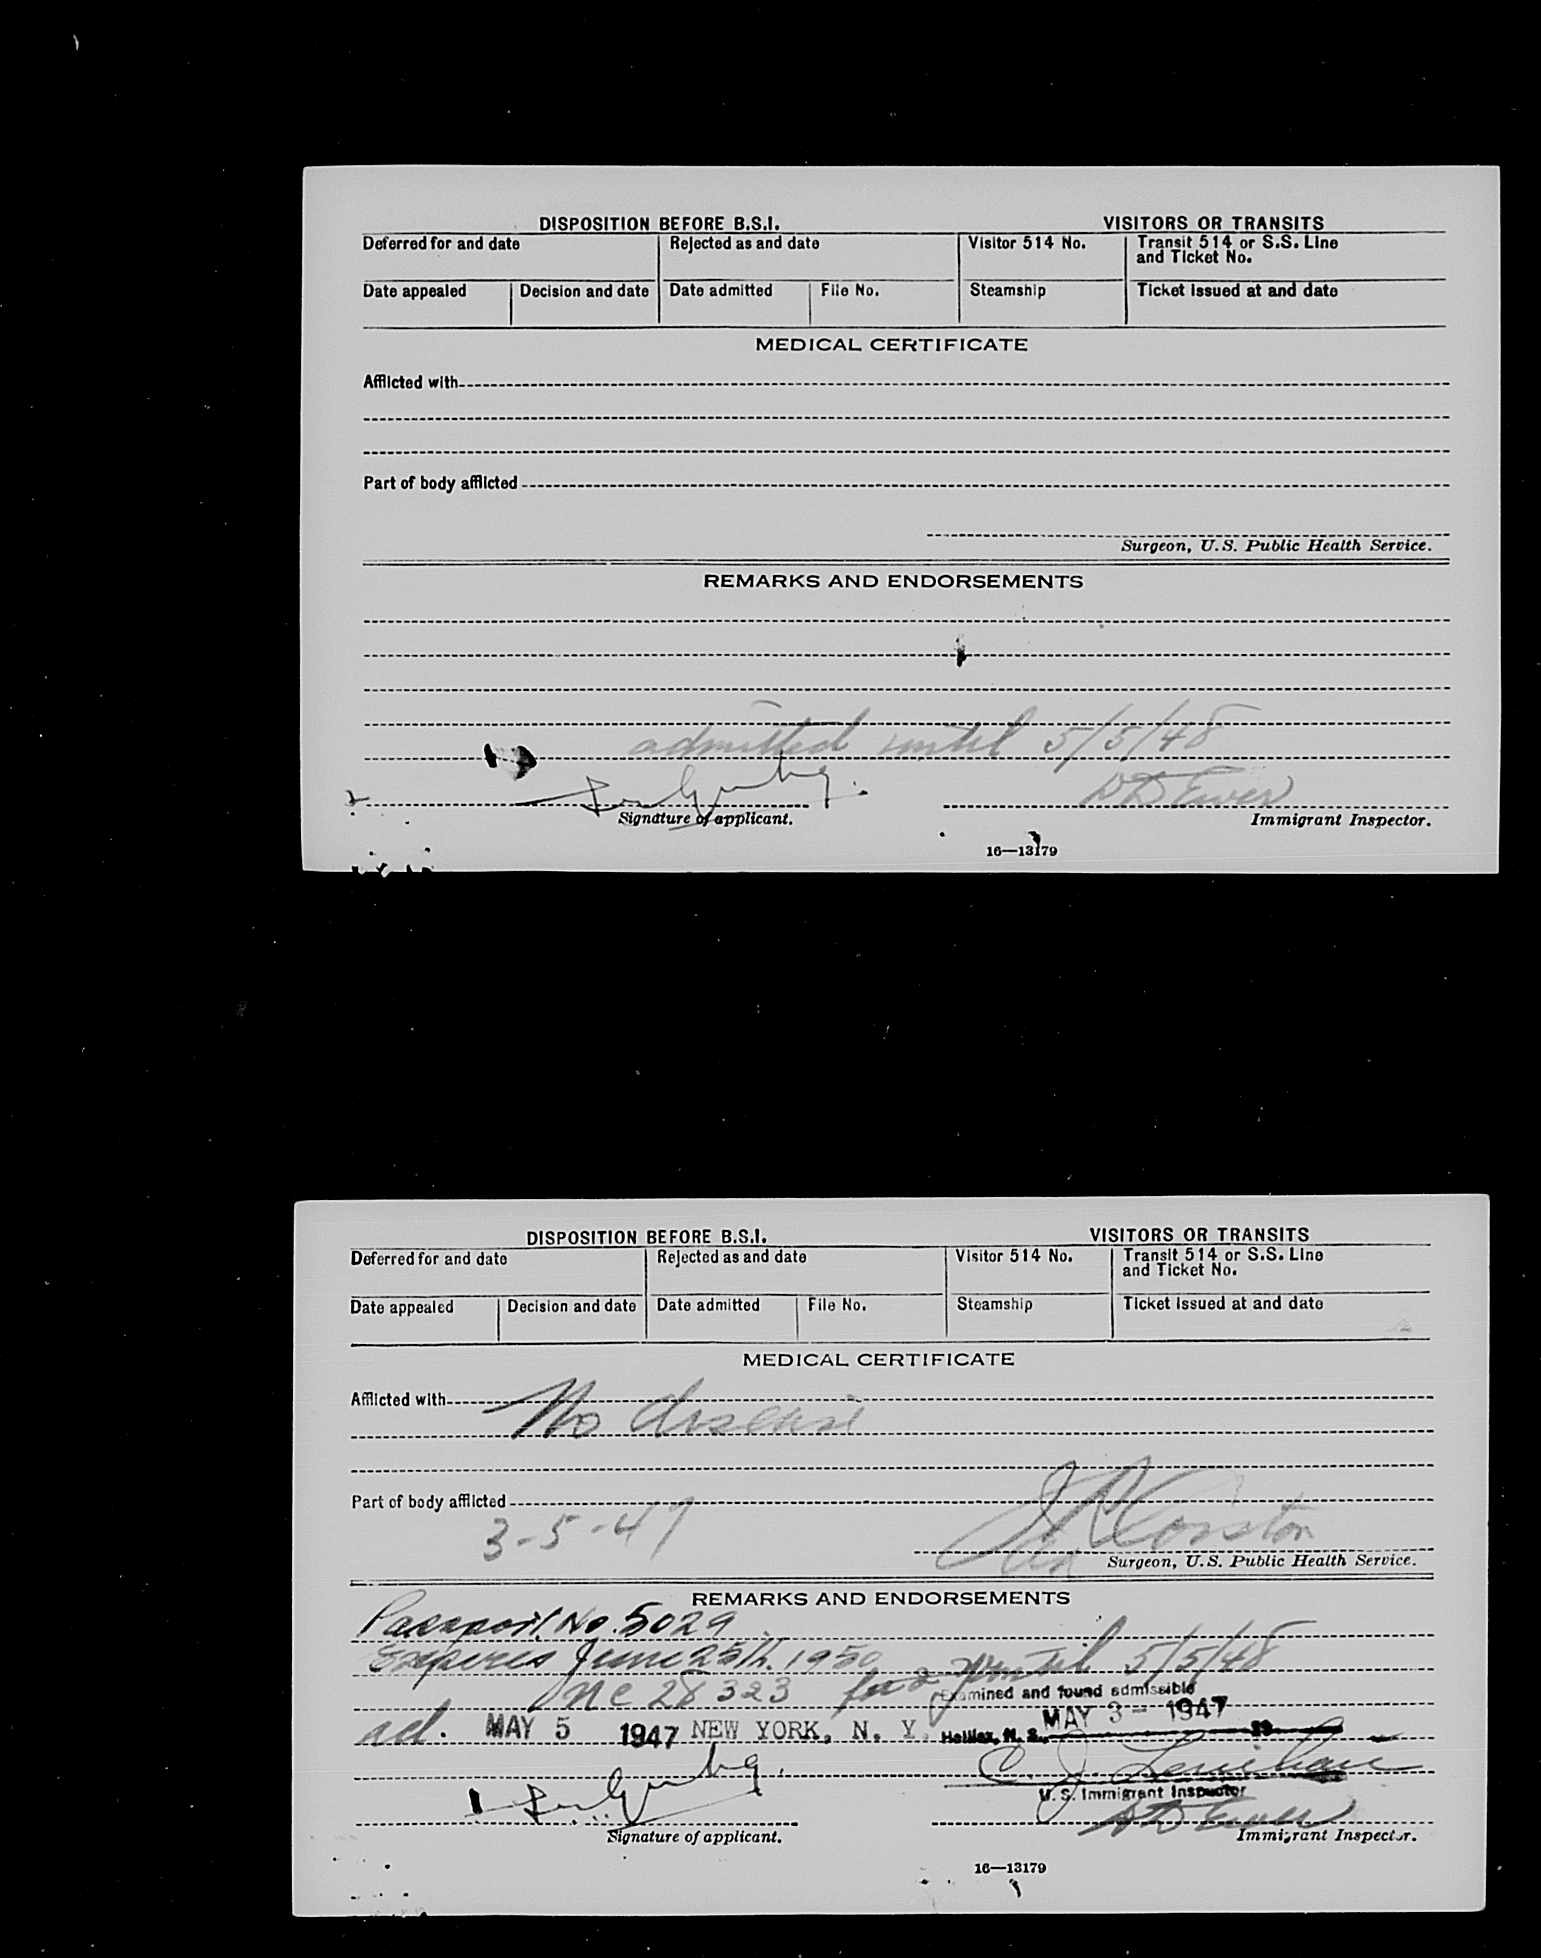 DISPOSITION BEFORE B.S.I. VISITORS OR TRANSITS
Deferred for and date Rejected as and date Visitor 514 No. Transit 514 or S.S. Line
and Ticket No.
Date appealed Decision and date Date admitted File No. Steamship Ticket issued at and date
MEDICAL CERTIFICATE
Afflicted with
Part of body afflicted
Surgeon, U.S. Public Health Service.
REMARKS AND ENDORSEMENTS
admitted until 5/5/48
Signature of applicant. Immigrant Inspector.
16—13179
DISPOSITION BEFORE B.S.I. VISITORS OR TRANSITS
Deferred for and date Rejected as and date Visitor 514 No. Transit 514 or S.S. Line
and Ticket No.
Date appealed Decision and date Date admitted File No. Steamship Ticket issued at and date
MEDICAL CERTIFICATE
Afflicted with No disease
Part of body afflicted
3-5-47
Surgeon, U.S. Public Health Service.
REMARKS AND ENDORSEMENTS
Passport No. 5029
Expires June 25th. 1950 until 5/5/48
28323 Examined and found admissible
ad. MAY 5 1947 NEW YORK, N. Y. Halifax, N. S., MAY 3- 1947 19
C. J.
U. S. Immigrant Inspector
Signature of applicant. Immigrant Inspector.
16—13179